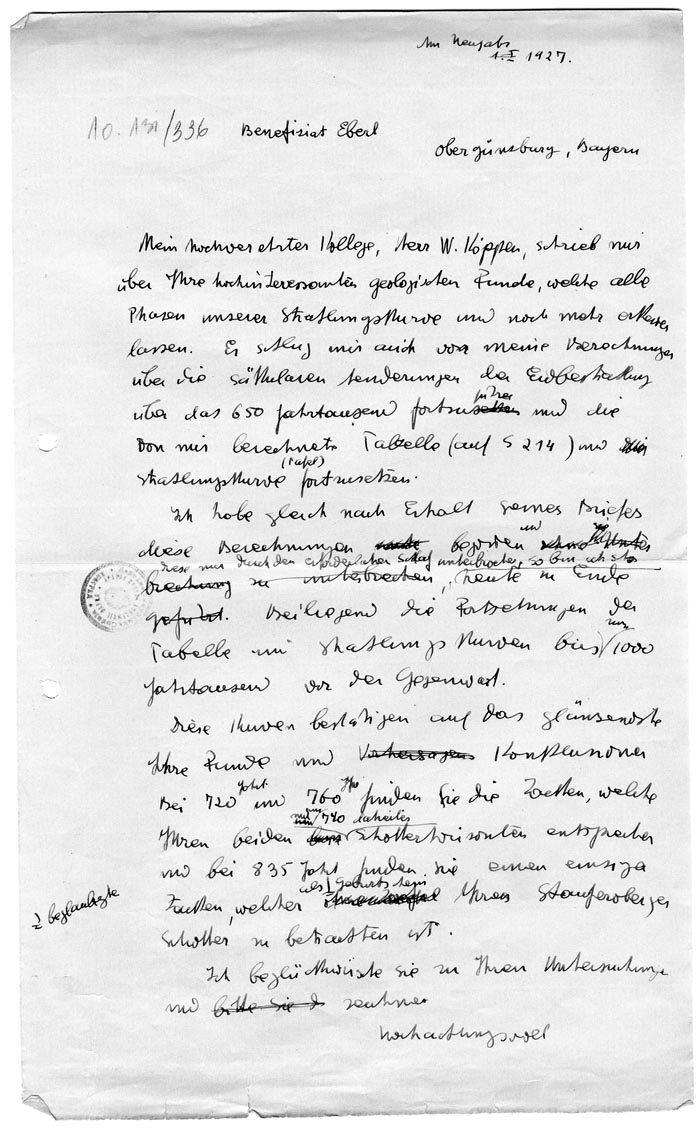 Am Neujahr
1.I 1927.
10.131/336 Benefiziat Eberl
Obergünzburg, Bayern
Mein hochverehrter Kollege, Herr W. Köppen, schrieb mir
über Ihre hochinteressanten geologischen Funde, welche alle
Phasen unserer Strahlungskurve und noch mehr erkennen
lassen. Er schlug mir auch vor meine Berechnungen
über die säkularen Aenderungen der Erdbestrahlung
führen
über das 650 Jahrtausend fortzusetzen und die
von mir berechnete Tabelle (auf S 214) und die
(Tafel)
Strahlungskurve fortzusetzen.
Ich habe gleich nach Erhalt seines Briefes
und
diese Berechnungen begonnen ohne
diese nur durch den erforderlichen Schlaf unterbrochen, so bin ich
brechung zu unterbrechen, heute zu Ende
geführt. Beiliegend die Fortsetzungen der
Tabelle und Strahlungskurven bis 1000
Jahrtausend vor der Gegenwart.
Diese Kurven bestätigen auf das glänzendste
Ihre Funde und Vorhersagen Konklusionen
Jaht
Bei 720 und 760 finden Sie die Zacken, welche
740
Ihren beiden Schotterhorizonten entsprechen
und bei 835 Jaht finden Sie einen einzigen
als Geburtsstein
I beglaubigte
Zacken, welcher Ihres Staufenberger
Schotter zu betrachten ist.
Ich beglückwünsche Sie zu Ihren Untersuchungen
und bitte Sie zeichne
Hochachtungsvoll